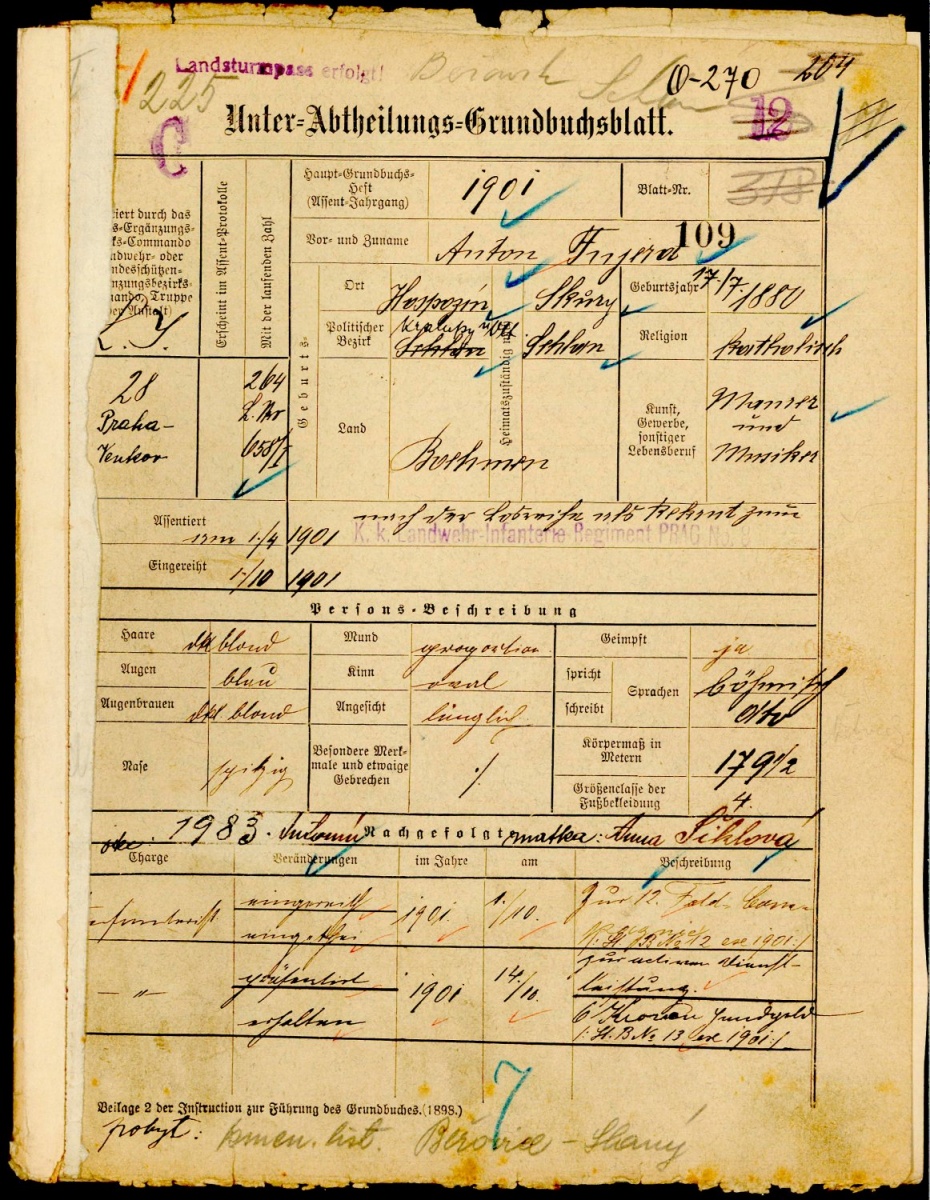 Landsturmpass erfolgt!
O-270
204
225
12
Unter-Abtheilungs-Grundbuchsblatt.
C
Haupt-Grundbuchs-
Heft
(Assent-Jahrgang)
1901
Blatt-Nr.
318
109
Vor- und Zuname
Anton Fujera
iert durch das
s-Ergänzungs-
ks-Commando
ndwehr- oder
ndesschützen-
nzungsbezirks-
mando, Truppe
er Anstalt)
Erscheint im Assent-Protokolle
Mit der laufenden Zahl
Geburts-
Ort
Hospozín
Heimatszuständig in
Skury
Geburtsjahr
17/7. 1880
Politischer
Bezirk
Schlan
Schlan
Religion
katholisch
28
Praha-
Venkov
264
L. Nr
658/I
Land
Boehmen
Kunst,
Gewerbe,
sonstiger
Lebensberuf
Maurer
und
Musiker
Assentiert
am 1./4 1901
nach der Losreihe als Rekrut zum
K. k. Landwehr-Infanterie-Regiment PRAG No. 8
Eingereiht
1./10 1901
Persons-Beschreibung
Haare
dkl blond
Mund
proportion.
Geimpft
ja
Augen
blau
Kinn
oval
spricht
schreibt
Sprachen
böhmisch
dto
Augenbrauen
dkl. blond
Angesicht
länglich
Nase
spitzig
Besondere Merk-
male und etwaige
Gebrechen
./.
Körpermaß in
Metern
179 1/2
Größenclasse der
Fußbekleidung
4.
otec: 1983. Antonín Nachgefolgt matka: Anna Šiklová
Charge
Veränderungen
im Jahre
am
Beschreibung
eingereiht
1901.
1./10.
Zur 12. Feld-
eingetheilt
1901:/
präsentirt
1901
14./10.
zur activen Dienst-
leistung.
erhalten
6 Kronen Handgeld
/: St. B No 13 ex 1901:/
7
Beilage 2 der Instruction zur Führung des Grundbuches. (1898.)
pobyt: kmen. list. Beřovice - Slaný